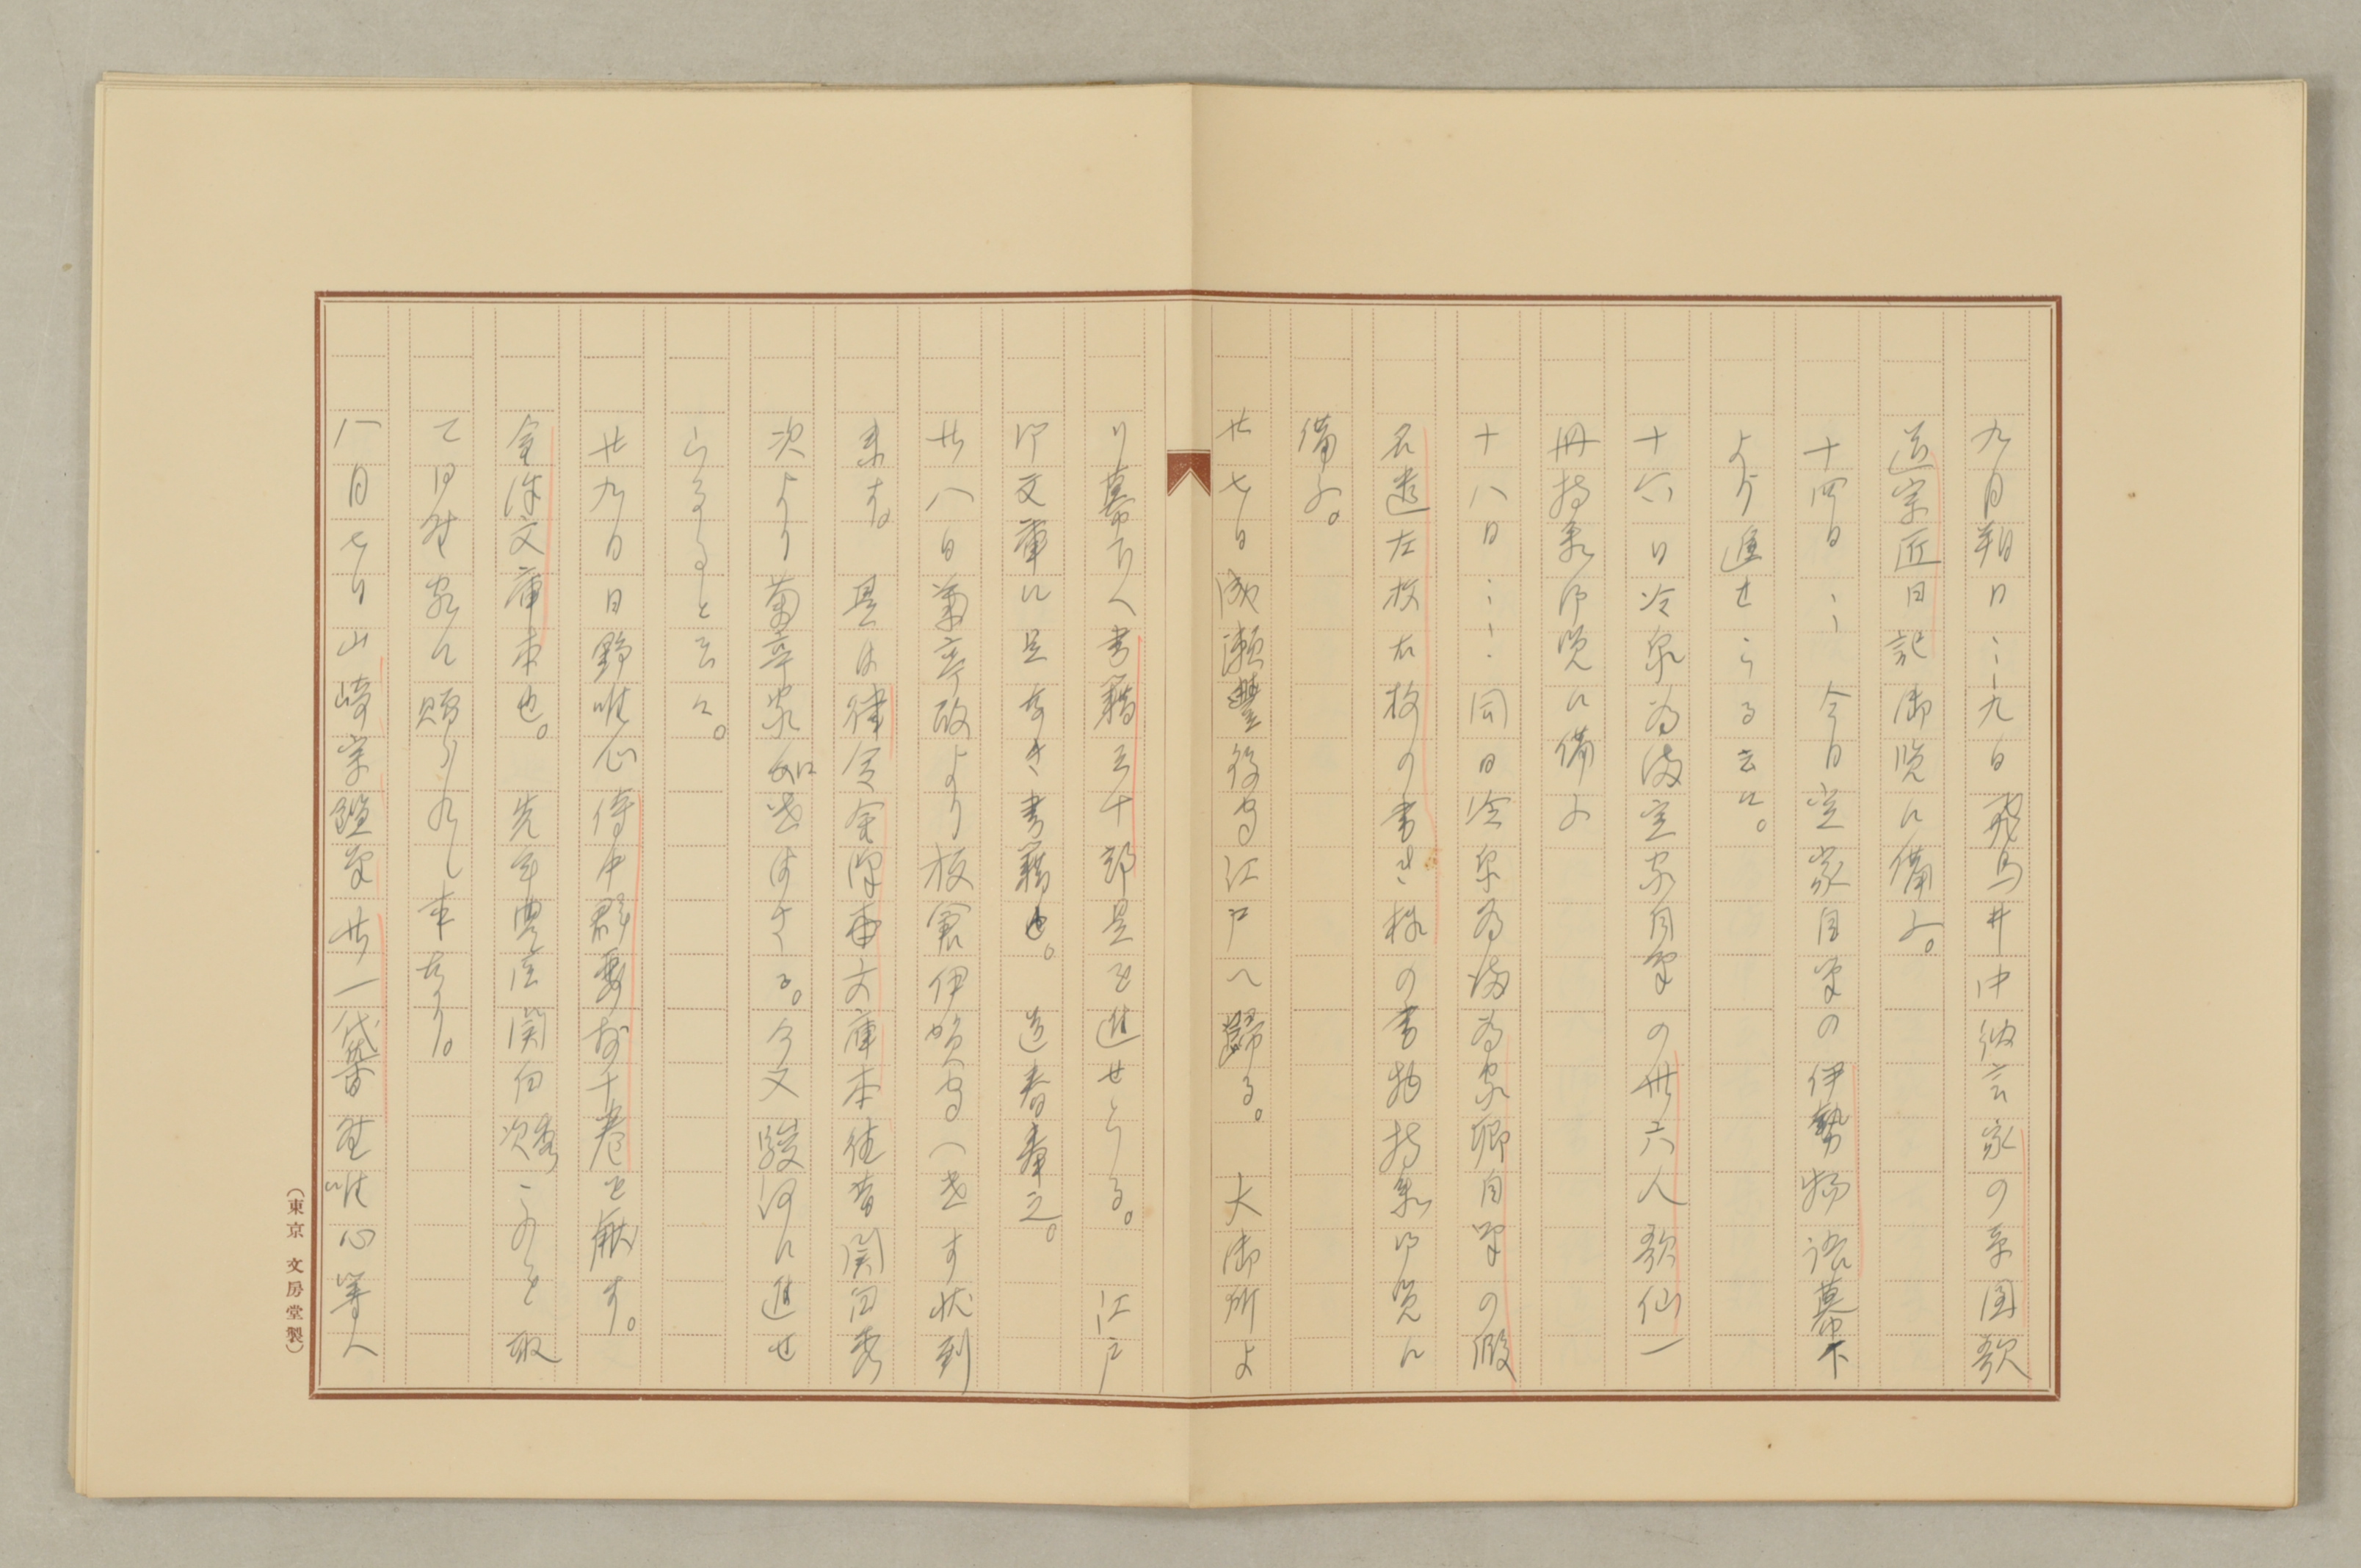 九月朔日……九日飛鳥井中納言家の系図歌
道宗匠日記御覧に備ふ。
十四日…… 今日定家自筆の伊勢物語幕下
より進せらる云々。
十六日冷泉為満定家自筆の卅六人歌仙一
冊持参御覧に備ふ
十八日……同日冷泉為満為家卿自筆の假
名遣左枚右枚の書き様の書物持参御覧に
備ふ。
廿七日成瀬豊後守江戸へ歸る。 大御所よ
り幕下へ書籍三十部是を進せらる。 江戸
御文庫に是なき書籍也。 道春奉之。
廿八日菊亭殿より板倉伊賀守へ達す状到
来す。 是は律令金沢文庫本往昔関白秀
次より菊亭家に遣はさる。今又駿河に進せ
らるゝと云々。
廿九日日野唯心侍中群要抄十巻を献す。
金沢文庫本也。 先年豊臣関白秀次これを取
て日野家に賜りたし本なり。
八月七日山崎宗鑑筆廿一代集日野唯心等人
(東京 文房堂製)